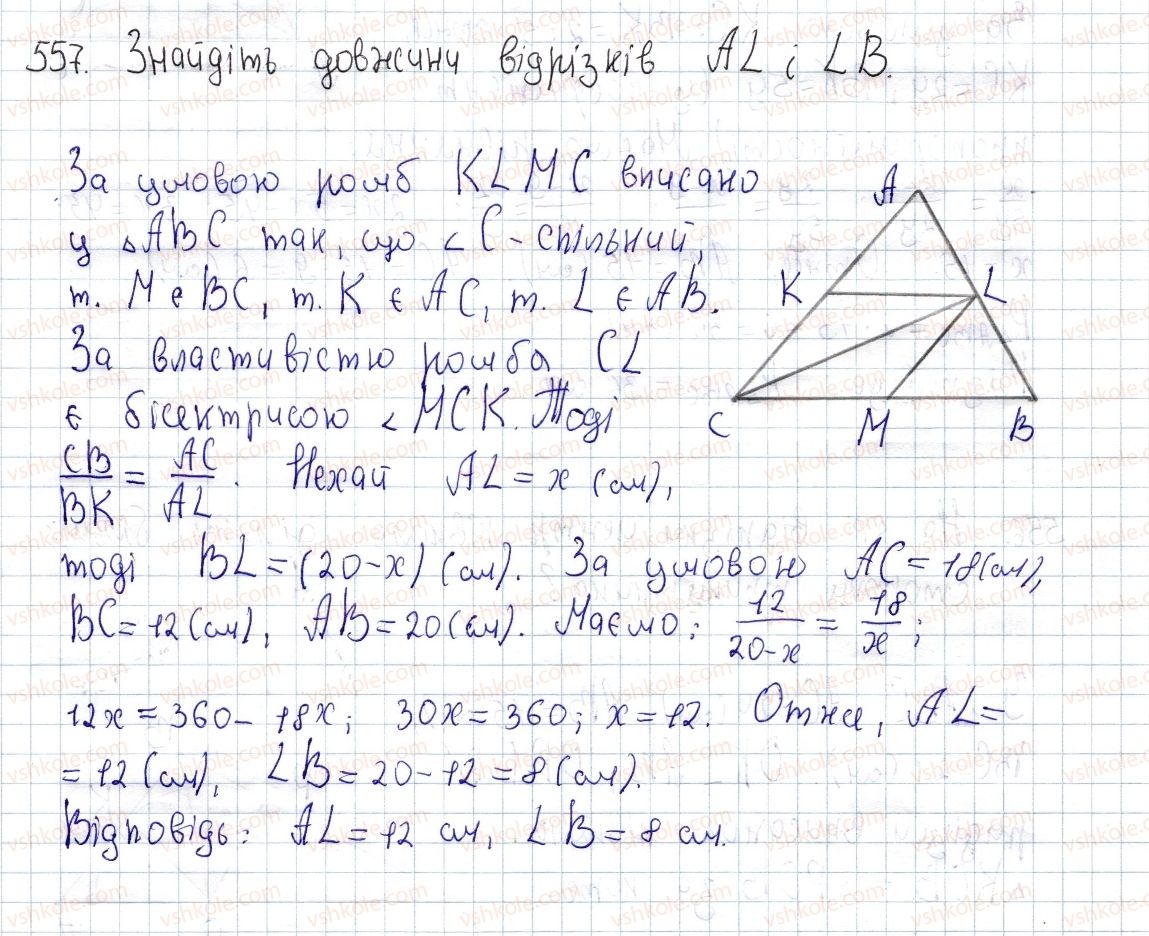 557. Знайдіть довжини відрізків AL і LB.
За умовою ромб KLMC вписано
у △ABC так, що ∠C - спільний,
т. M є BC, т. K є AC, т. L є AB.
За властивістю ромба CL
є бісектрисою ∠MCK. Тоді
CB/BK = AC/AL. Нехай AL = x (см),
тоді BL = (20-x) (см). За умовою AC = 18(см),
BC = 12 (см), AB = 20 (см). Маємо: 12/(20-x) = 18/x;
12x = 360 - 18x; 30x = 360; x = 12. Отже, AL =
= 12 (см), LB = 20 - 12 = 8 (см).
Відповідь: AL = 12 см, LB = 8 см.
A
K L
C M B
vshkole.com